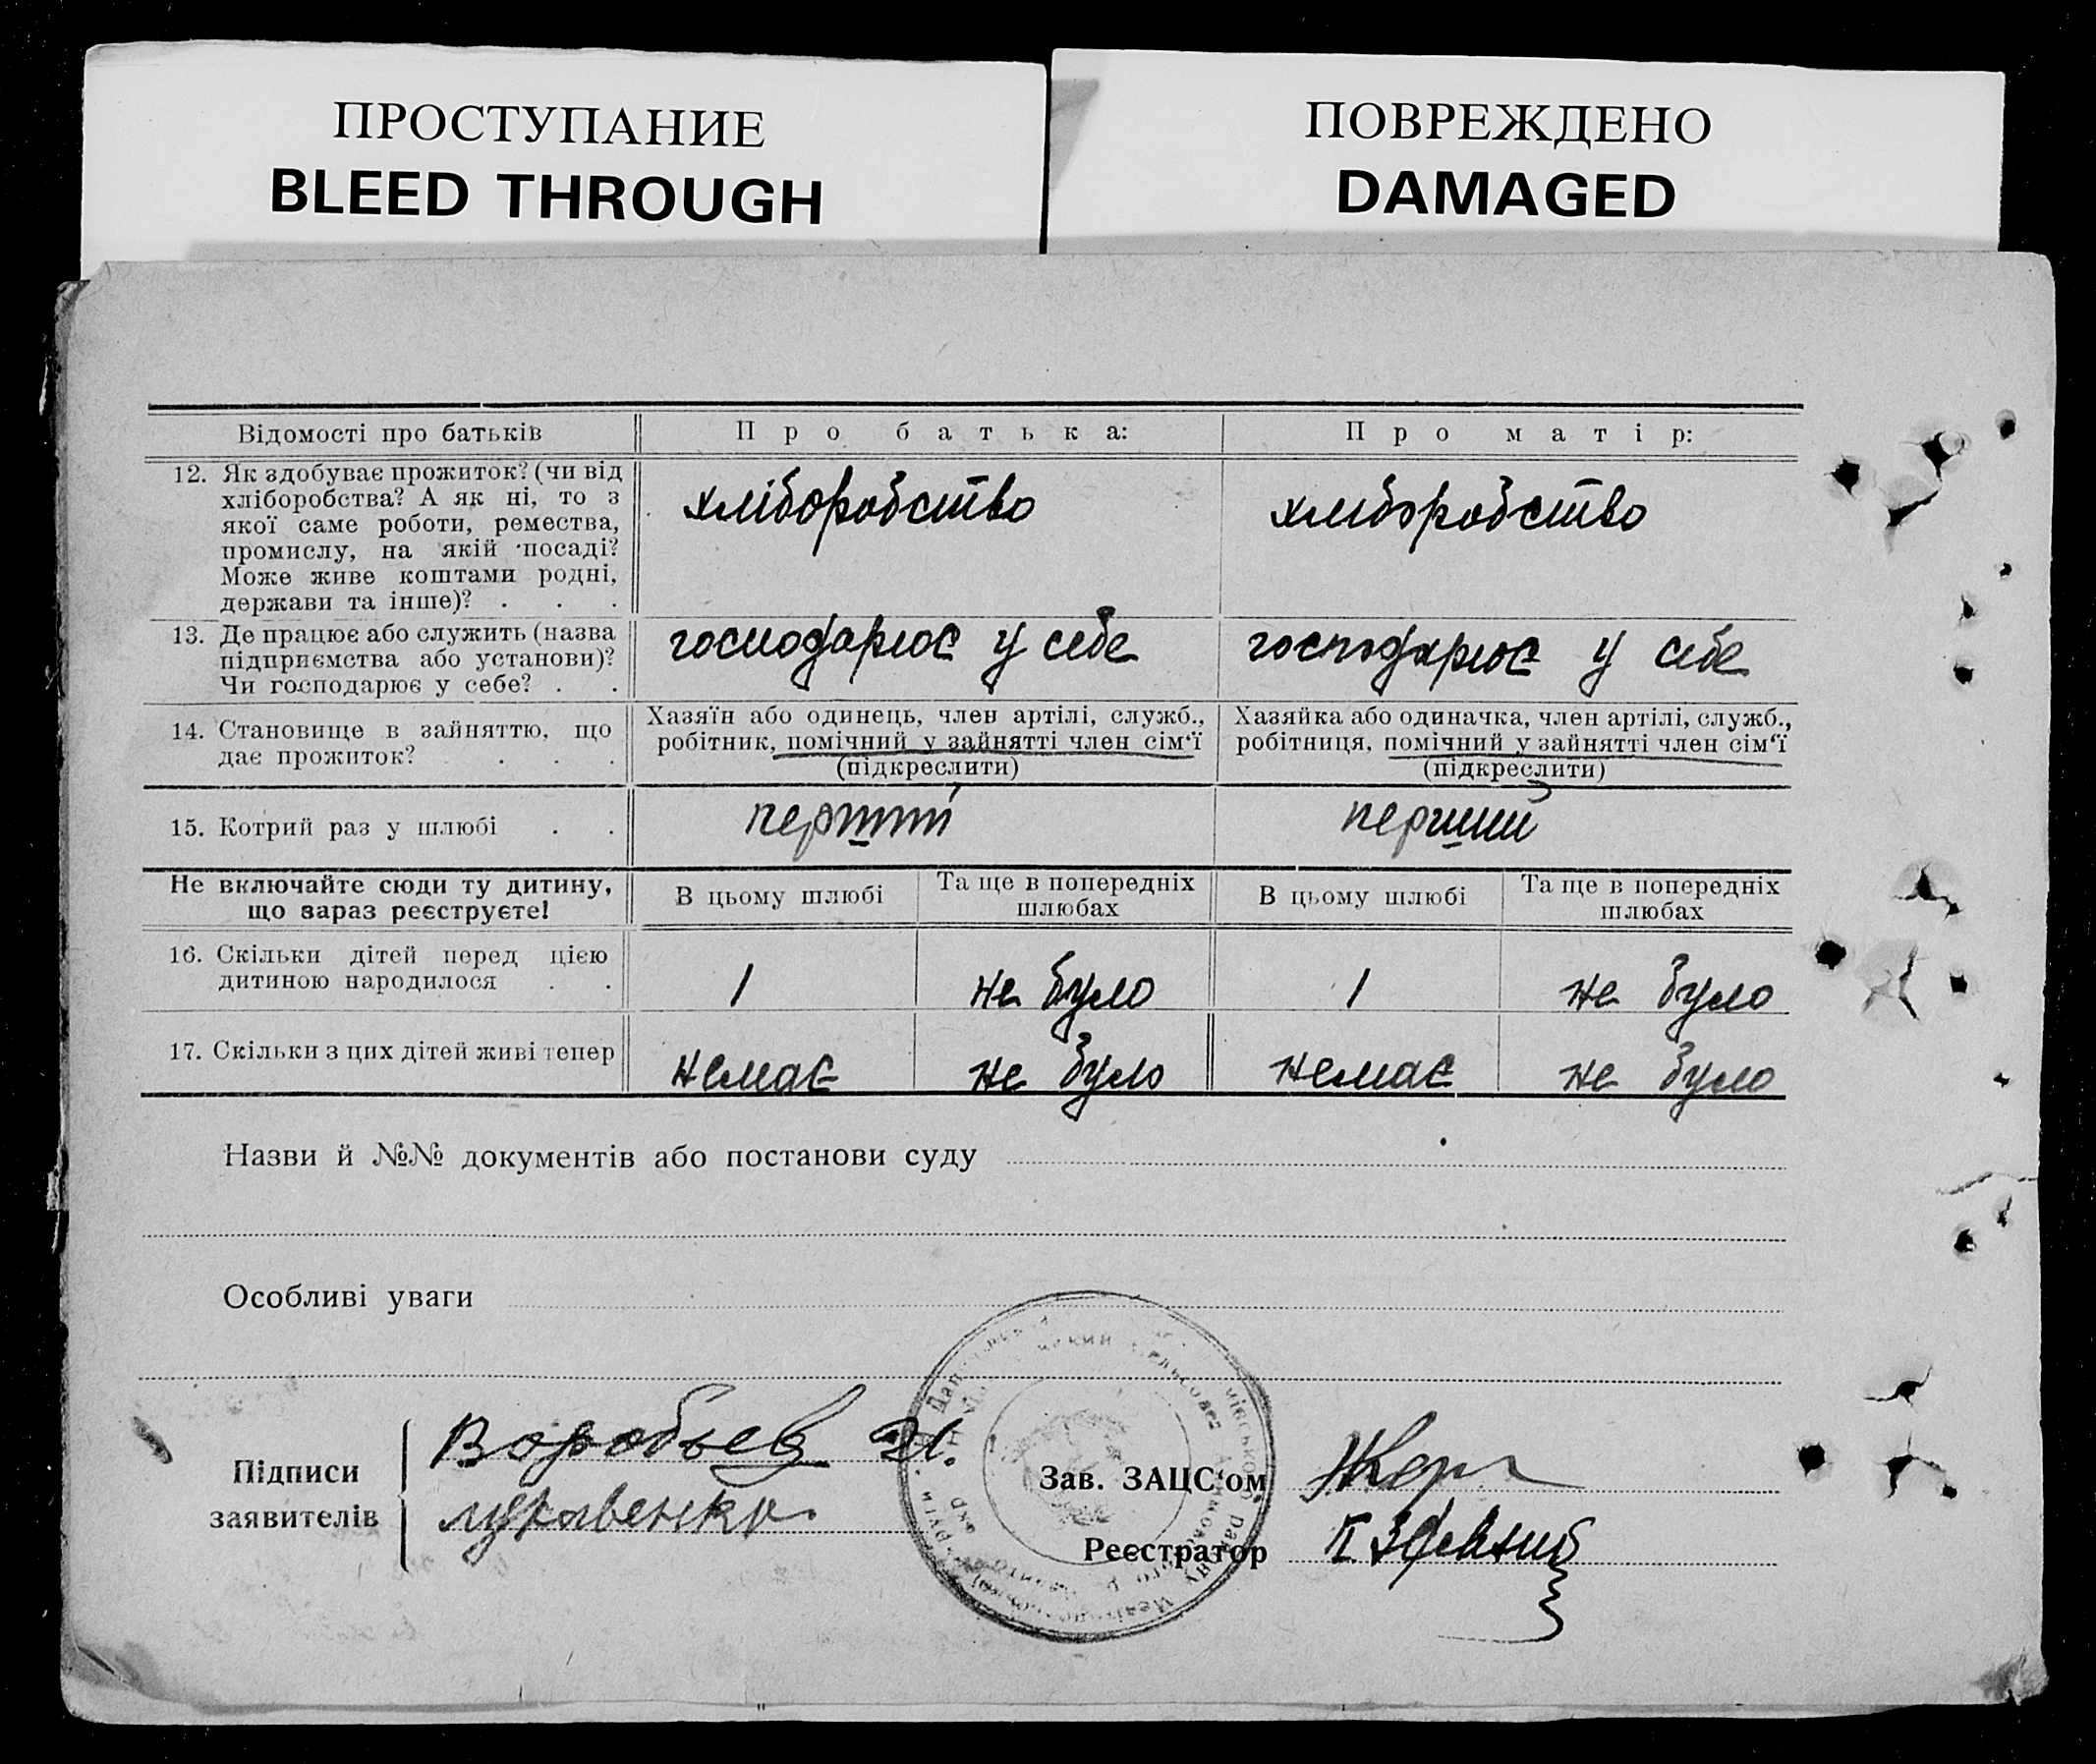 ПРОСТУПАНИЕ
BLEED THROUGH
ПОВРЕЖДЕНО
DAMAGED
Відомості про батьків
Про батька:
Про матір:
12. Як здобуває прожиток? (чи від
хліборобства? А як ні, то з
якої саме роботи, ремества,
промислу, на якій посаді?
Може живе коштами родні,
держави та інше)? . . .
хліборобство
хліборобство
13. Де працює або служить (назва
підприємства або установи)?
Чи господарює у себе? . .
господарює у себе
господарює у себе
14. Становище в зайняттю, що
дає прожиток? . . .
Хазяїн або одинець, член артілі, служб.,
робітник, помічний у зайнятті член сім‘ї
(підкреслити)
Хазяйка або одиначка, член артілі, служб.,
робітниця, помічний у зайнятті член сім‘ї
(підкреслити)
15. Котрий раз у шлюбі . .
перший
перший
Не включайте сюди ту дитину,
що зараз реєструєте!
В цьому шлюбі
Та ще в попередніх
шлюбах
В цьому шлюбі
Та ще в попередніх
шлюбах
16. Скільки дітей перед цією
дитиною народилося . .
1
не було
1
не було
17. Скільки з цих дітей живі тепер
немає
не було
немає
не було
Назви й №№ документів або постанови суду
Особливі уваги
Підписи
заявителів
Воробьев
Зав. ЗАЦС‘ом
Реєстратор